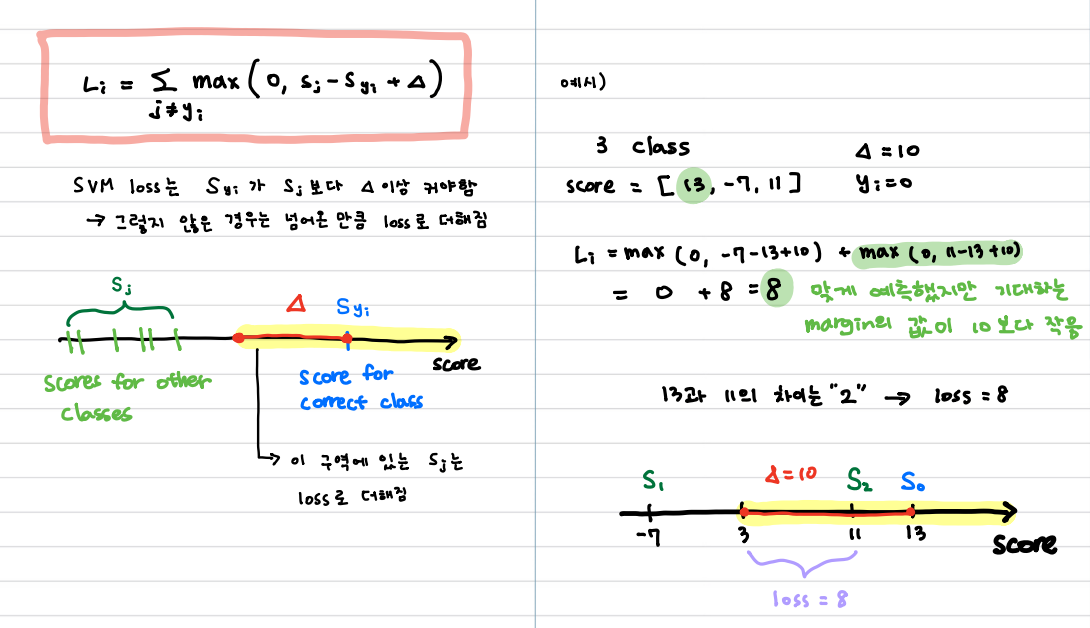 Li = Σ max(0, sj - syi + Δ)
j≠yi
SVM loss는 Syi가 Sj보다 Δ이상 커야함
→ 그렇지 않은 경우는 넘어온 만큼 loss로 더해짐
Sj
Δ
Syi
score
scores for other
classes
score for
correct class
이 구역에 있는 Sj는
loss로 더해짐
예시)
3 class
Δ = 10
score = [13, -7, 11]
yi = 0
Li = max(0, -7-13+10) + max(0, 11-13+10)
= 0 + 8 = 8
맞게 예측했지만 기대하는
margin의 값이 10보다 작음
13과 11의 차이는 "2" → loss = 8
S1
Δ=10
S2
S0
-7
3
11
13
score
loss = 8